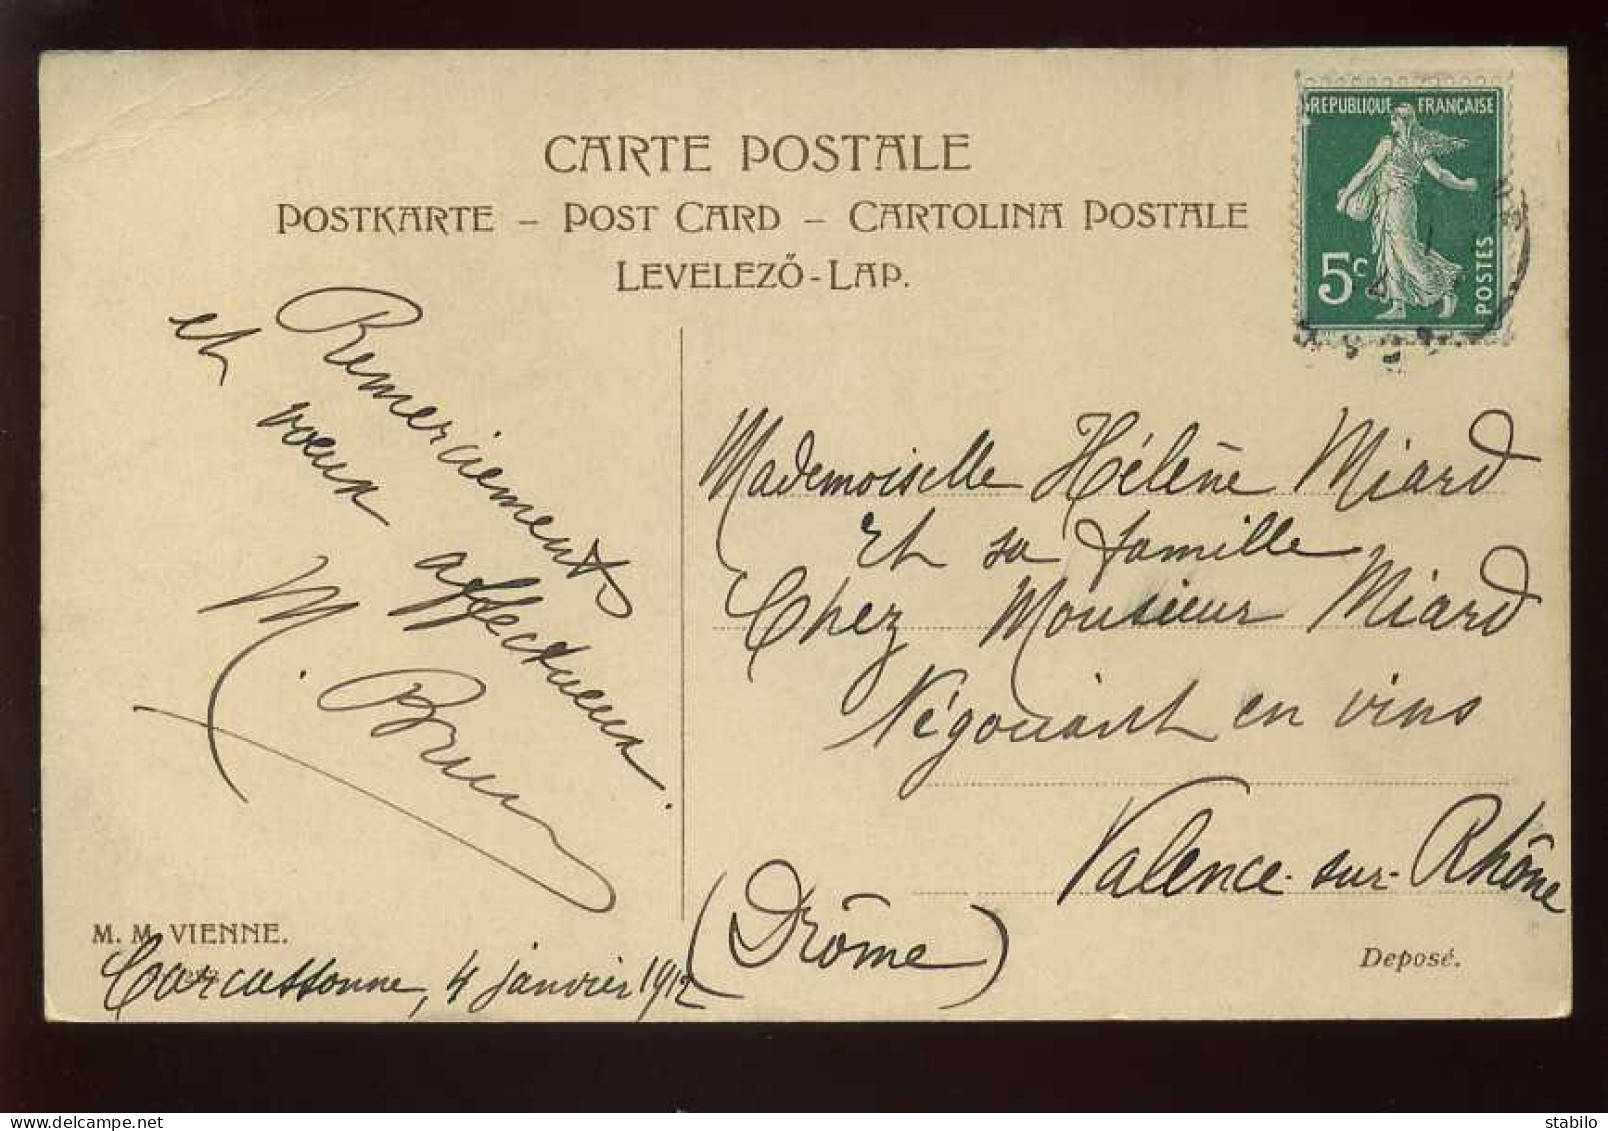 CARTE POSTALE
POSTKARTE – POST CARD – CARTOLINA POSTALE
LEVELEZŐ-LAP.
REPUBLIQUE FRANÇAISE
5c
POSTES
Remerciements
et voeux affectueux.
M. Brun
Mademoiselle Hélène Miard
Et sa famille
Chez Monsieur Miard
Négociant en vins
Valence-sur-Rhône
(Drôme)
M. M. VIENNE.
Carcassonne, 4 janvier 1912
Deposé.
stabilo